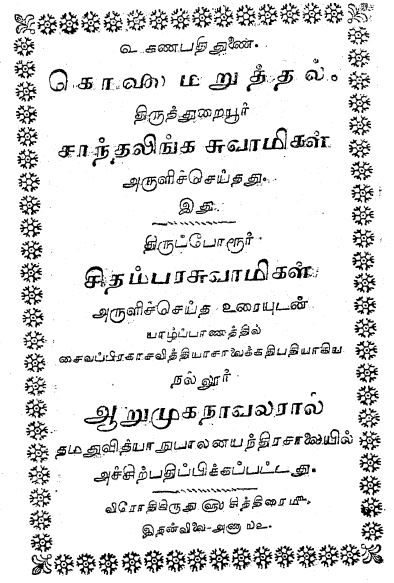 உ கணபதிதுணை.
கொலை மறுத்தல்.
திருத்துறையூர்
சாந்தலிங்க சுவாமிகள்
அருளிச்செய்தது.
இது
திருப்போரூர்
சிதம்பரசுவாமிகள்
அருளிச்செய்த உரையுடன்
யாழ்ப்பாணத்தில்
சைவப்பிரகாசவித்தியாசாலைக்கதிபதியாகிய
நல்லூர்
ஆறுமுகநாவலரால்
தமதுவித்யாநுபாலனயந்திரசாலையில்
அச்சிற்பதிப்பிக்கப்பட்டது.
விரோதிகிருது௵ சித்திரை௴
இதன்விலை-அணா ௰௨.